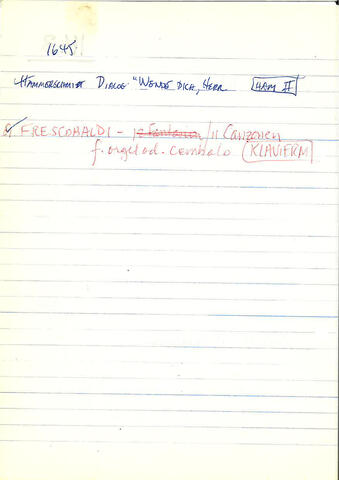 1645
HAMMERSCHMIDT DIALOG "WENDE DICH, HERR HAM II
FRESCOBALDI - 12 Fantasien / 11 Canzonen
f. orgel od. cembalo KLAVIERM